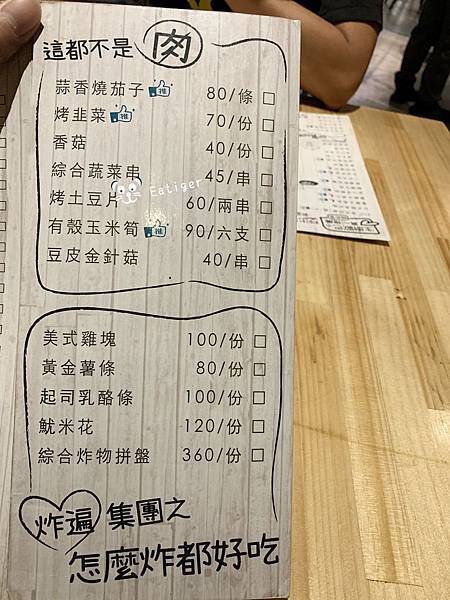 這都不是 肉
蒜香燒茄子 推 80/條 □
烤韭菜 推 70/份 □
香菇 40/份 □
綜合蔬菜串 45/串 □
Eatiger
烤土豆片 60/兩串 □
有殼玉米筍 推 90/六支 □
豆皮金針菇 40/串 □
美式雞塊 100/份 □
黃金薯條 80/份 □
起司乳酪條 100/份 □
魷米花 120/份 □
綜合炸物拼盤 360/份 □
炸遍 集團之
怎麼炸都好吃